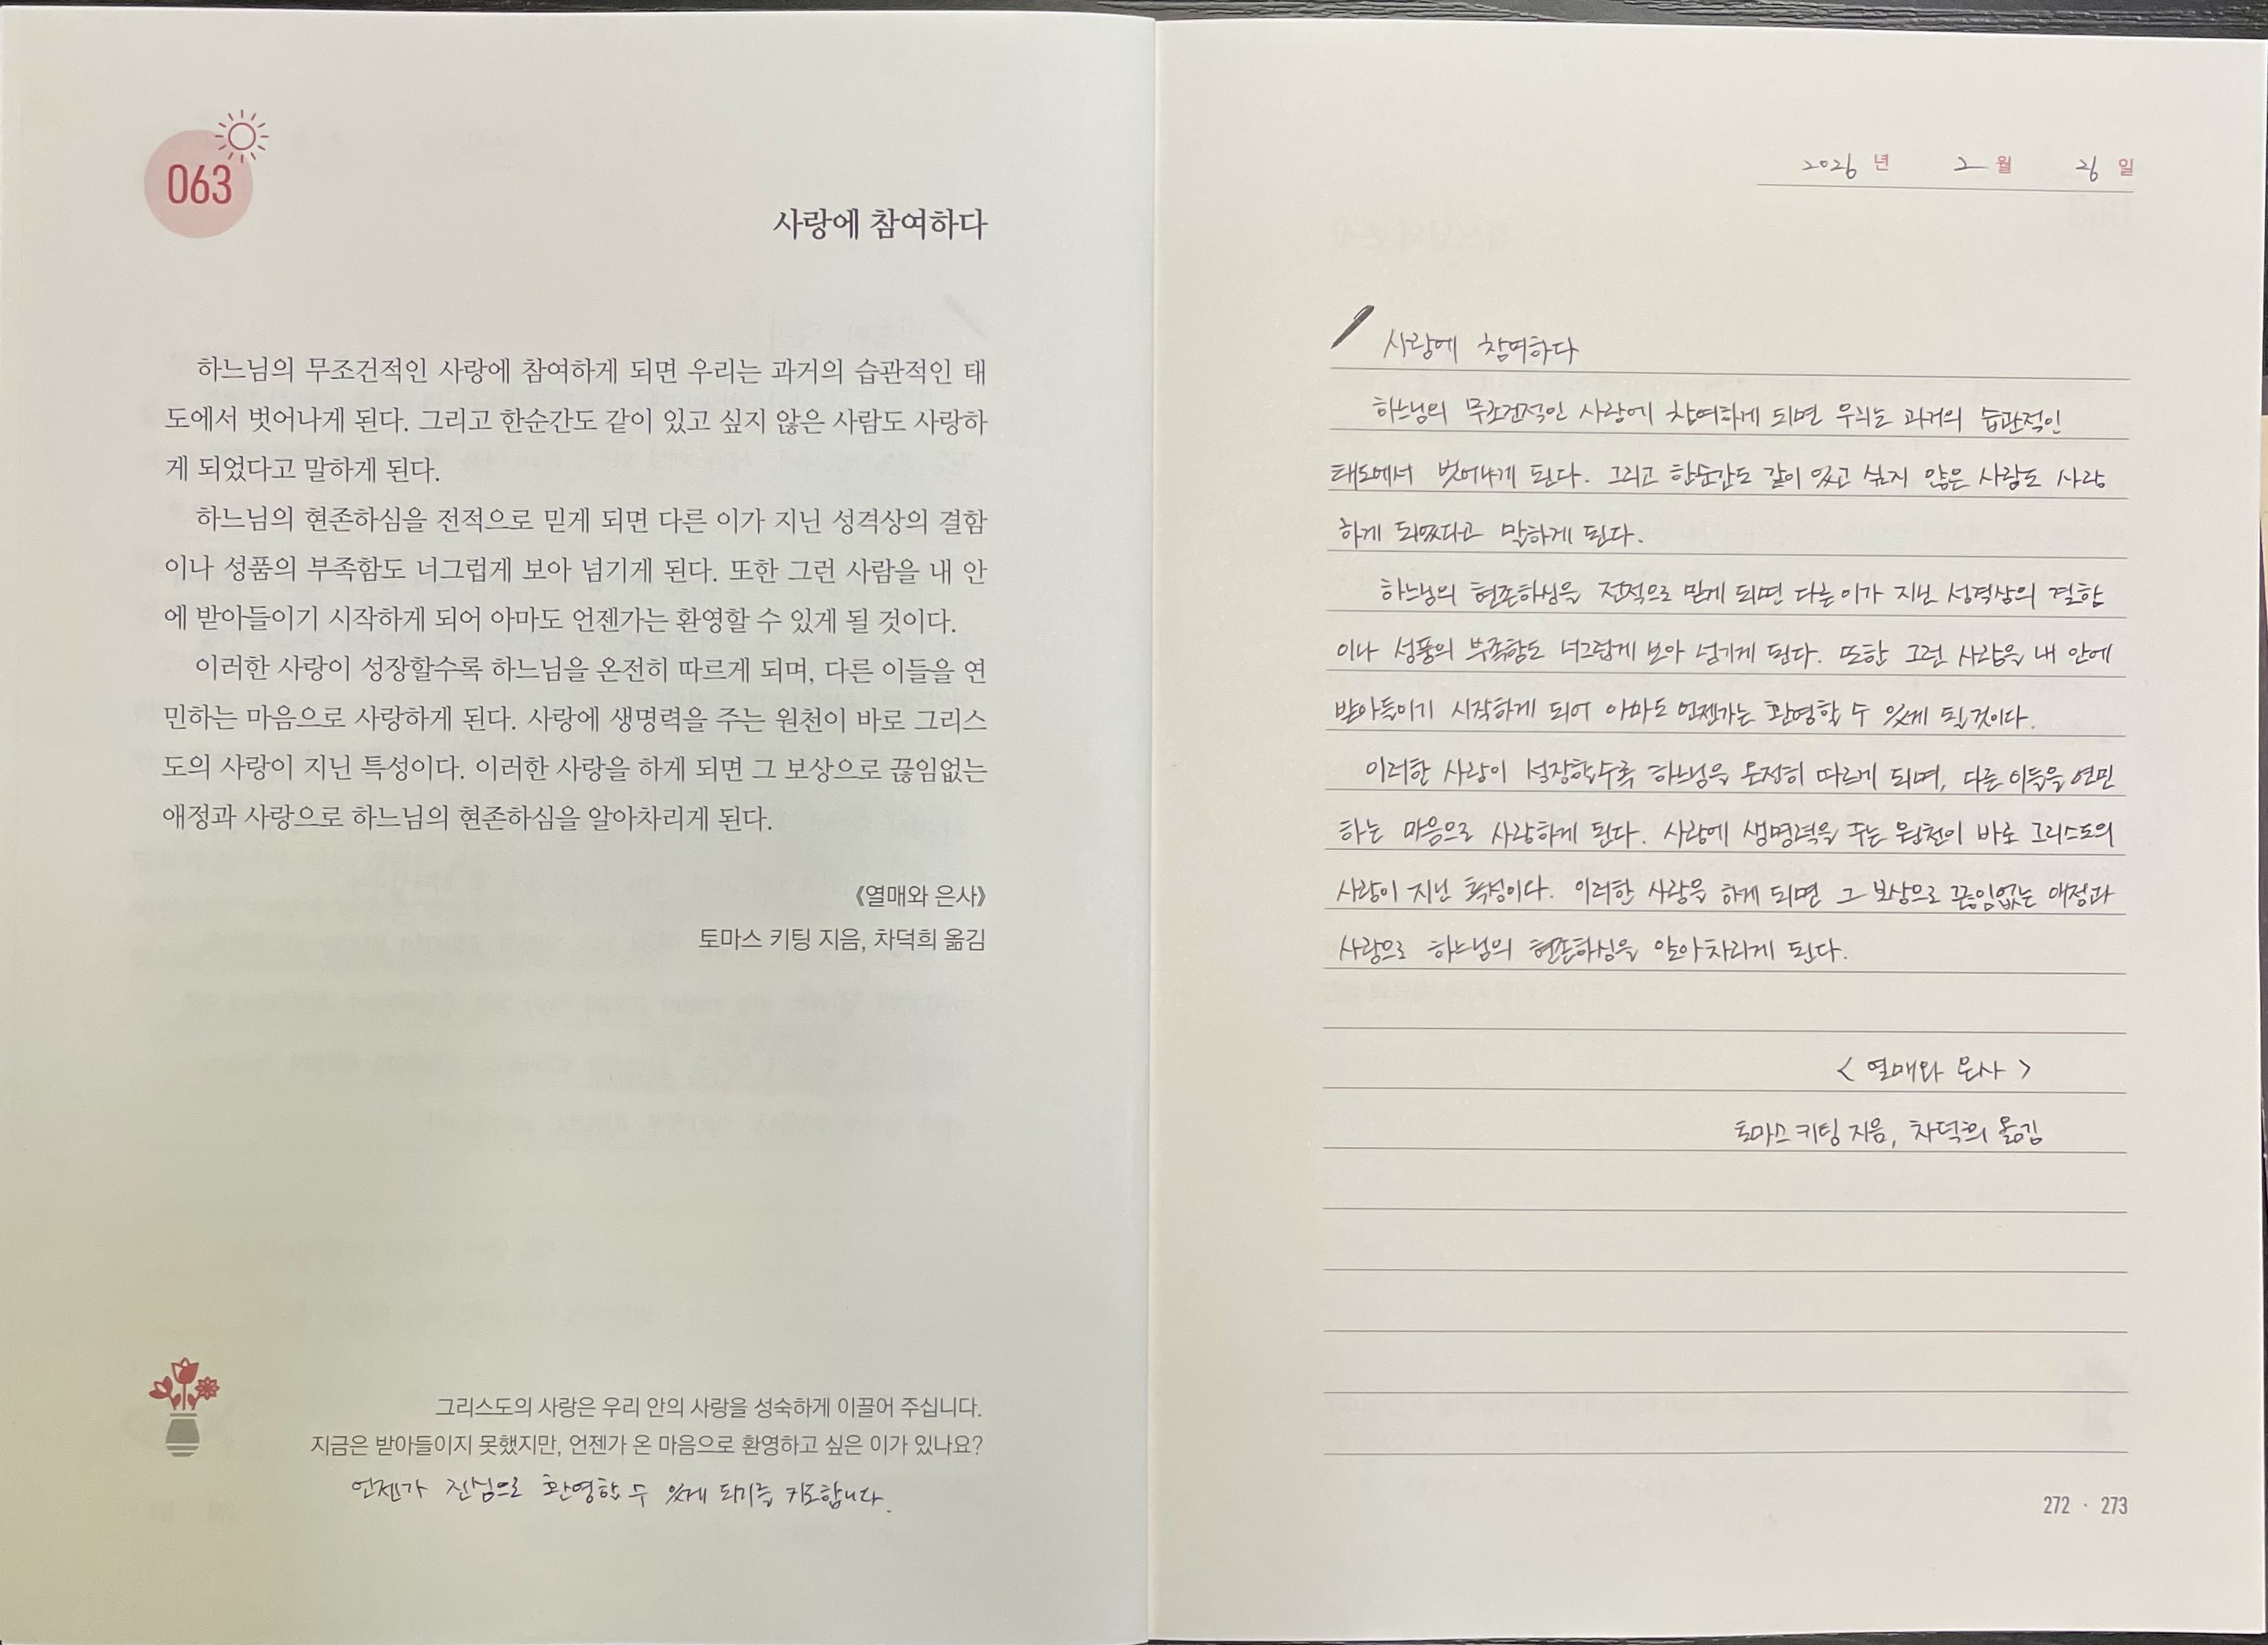 063
사랑에 참여하다
하느님의 무조건적인 사랑에 참여하게 되면 우리는 과거의 습관적인 태
도에서 벗어나게 된다. 그리고 한순간도 같이 있고 싶지 않은 사람도 사랑하
게 되었다고 말하게 된다.
하느님의 현존하심을 전적으로 믿게 되면 다른 이가 지닌 성격상의 결함
이나 성품의 부족함도 너그럽게 보아 넘기게 된다. 또한 그런 사람을 내 안
에 받아들이기 시작하게 되어 아마도 언젠가는 환영할 수 있게 될 것이다.
이러한 사랑이 성장할수록 하느님을 온전히 따르게 되며, 다른 이들을 연
민하는 마음으로 사랑하게 된다. 사랑에 생명력을 주는 원천이 바로 그리스
도의 사랑이 지닌 특성이다. 이러한 사랑을 하게 되면 그 보상으로 끊임없는
애정과 사랑으로 하느님의 현존하심을 알아차리게 된다.
《열매와 은사》
토마스 키팅 지음, 차덕희 옮김
그리스도의 사랑은 우리 안의 사랑을 성숙하게 이끌어 주십니다.
지금은 받아들이지 못했지만, 언젠가 온 마음으로 환영하고 싶은 이가 있나요?
언젠가 진심으로 환영할 수 있게 되기를 기도합니다.
2026 년 2 월 26 일
사랑에 참여하다
하느님의 무조건적인 사랑에 참여하게 되면 우리는 과거의 습관적인
태도에서 벗어나게 된다. 그리고 한순간도 같이 있고 싶지 않은 사람도 사랑
하게 되었다고 말하게 된다.
하느님의 현존하심을 전적으로 믿게 되면 다른 이가 지닌 성격상의 결함
이나 성품의 부족함도 너그럽게 보아 넘기게 된다. 또한 그런 사람을 내 안에
받아들이기 시작하게 되어 아마도 언젠가는 환영할 수 있게 될 것이다.
이러한 사랑이 성장할수록 하느님을 온전히 따르게 되며, 다른 이들을 연민
하는 마음으로 사랑하게 된다. 사랑에 생명력을 주는 원천이 바로 그리스도의
사랑이 지닌 특성이다. 이러한 사랑을 하게 되면 그 보상으로 끊임없는 애정과
사랑으로 하느님의 현존하심을 알아차리게 된다.
< 열매와 은사 >
토마스 키팅 지음, 차덕희 옮김
272 · 273